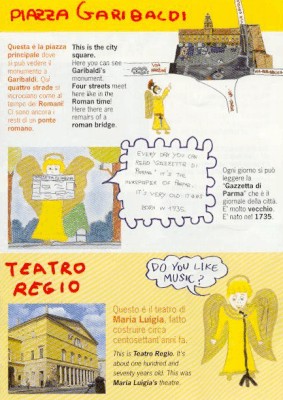 PIAZZA GARIBALDI
Questa è la piazza
principale dove
si può vedere il
monumento a
Garibaldi. Qui
quattro strade si
incrociano come ai
tempi dei Romani!
Ci sono ancora i
resti di un ponte
romano.
This is the city
square.
Here you can see
Garibaldi's
monument.
Four streets meet
here like in the
Roman time!
Here there are
remains of a
roman bridge.
EVERY DAY YOU CAN
READ "GAZZETTA DI
PARMA" IT'S THE
NEWSPAPER OF PARMA.
IT'S VERY OLD: IT WAS
BORN IN 1735.
Ogni giorno si può
leggere la
"Gazzetta di
Parma" che è il
giornale della città.
E' molto vecchio.
E' nato nel 1735.
TEATRO
REGIO
DO YOU LIKE
MUSIC?
Questo è il teatro di
Maria Luigia, fatto
costruire circa
centosettant'anni fa.
This is Teatro Regio. It's
about one hundred and
seventy years old. This was
Maria Luigia's theatre.